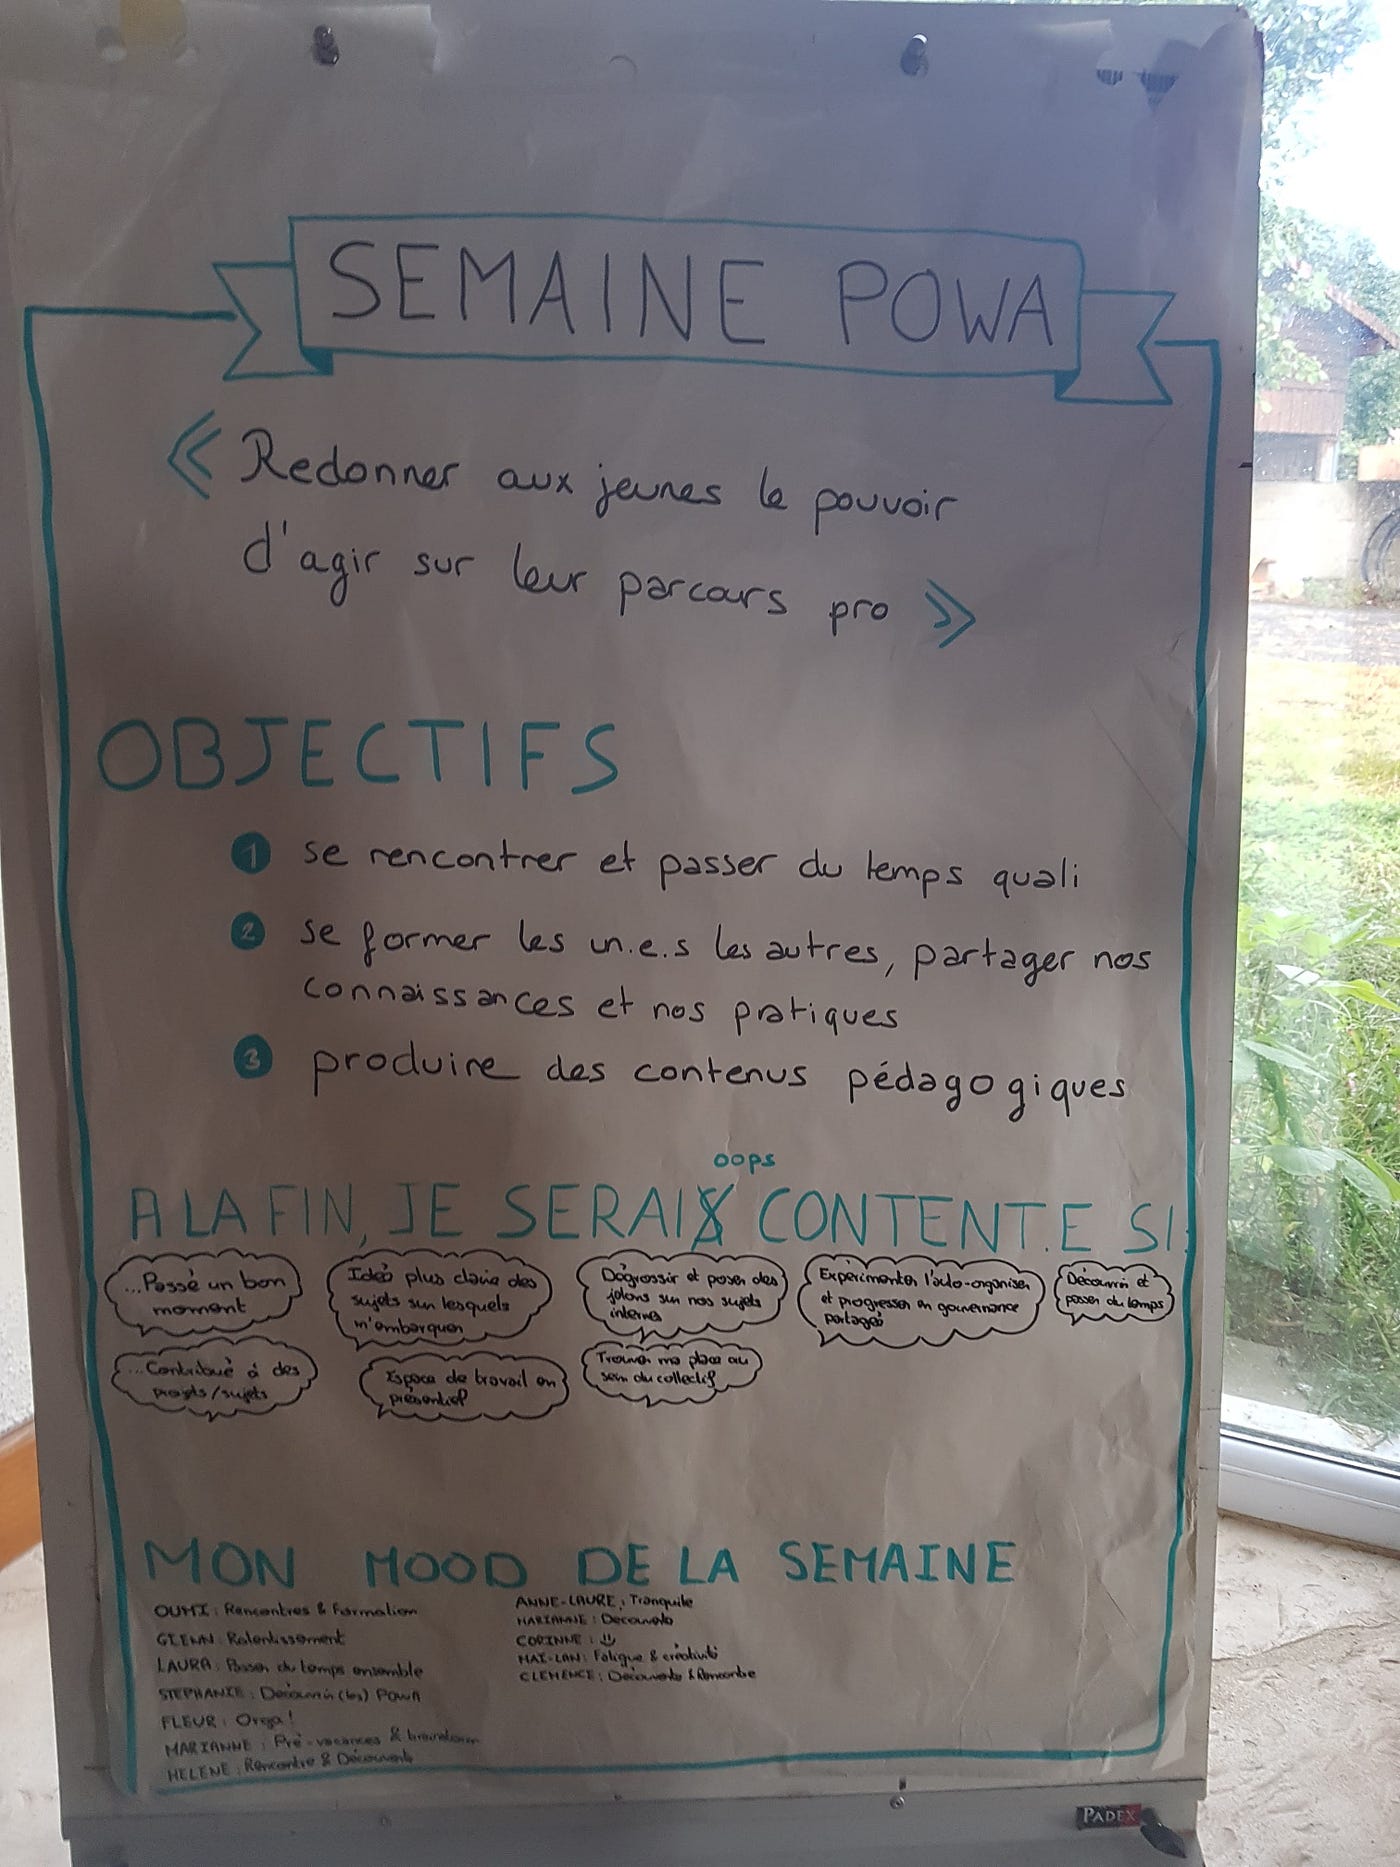 SEMAINE POWA
« Redonner aux jeunes le pouvoir
d'agir sur leur parcours pro »
OBJECTIFS
1 se rencontrer et passer du temps quali
2 se former les un.e.s les autres, partager nos
connaissances et nos pratiques
3 produire des contenus pédagogiques
oops
A LA FIN, JE SERAIS CONTENT.E SI:
...Passé un bon
moment
Idée plus claire des
sujets sur lesquels
m'embarquer
Dégrossir et poser des
jalons sur nos sujets
internes
Expérimenter l'auto-organiser
et progresser en gouvernance
partagée
Découvrir et
passer du temps
...Contribué à des
projets/sujets
Espace de travail en
présentiel
Trouver ma place au
sein du collectif
MON MOOD DE LA SEMAINE
OUMI : Rencontres & Formation
GLENN : Ralentissement
LAURA : Passer du temps ensemble
STEPHANIE : Découvrir (les) POWA
FLEUR : Orga !
MARIANNE : Pré-vacances &
HELENE : Rencontre & Découverte
ANNE-LAURE : Tranquile
MARIANNE : Découverte
CORINNE :
MAI-LAN : Fatigue & créativité
CLEMENCE : Découverte & Rencontre
PADEX